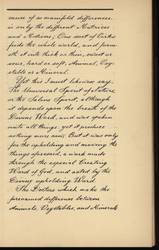 cause of so manifold differences,
is only the different Matrices
and Motions; One sort of
feeds the whole world, and forms
it self
sour, hard or soft, Animal, Veg-
etable or Mineral.
That this I must likewise say.
The Universal Spirit of Nature,
or the Saline Spirit, although
it depends upon the breath of the
Divine Word, and was spoken
unto all things, yet it produces
nothing more anew. But it was only
for the upholding and moving the
things aforesaid, a work made
through the especial Creating
Word of God, and aided by the
Divine upholding Word.
The Doctors which make the
presumed difference between
Animals, Vegetables, and Minerals